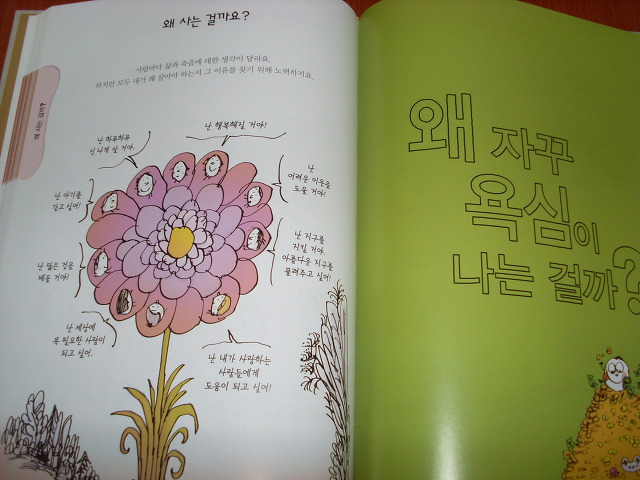 왜 사는 걸까요?
사람마다 삶과 죽음에 대한 생각이 달라요.
하지만 모두 내가 왜 살아야 하는지 그 이유를 찾기 위해 노력하지요.
왜 사는 걸까?
난 하루하루
신나게 살 거야.
난 행복해질 거야!
난
어려운 이웃을
도울 거야!
난 아기를
갖고 싶어!
난 지구를
지킬 거야.
아름다운 지구를
물려주고 싶어!
난 많은 것을
배울 거야!
난 세상에
꼭 필요한 사람이
되고 싶어.
난 내가 사랑하는
사람들에게
도움이 되고 싶어!
왜 자꾸
욕심이
나는 걸까?